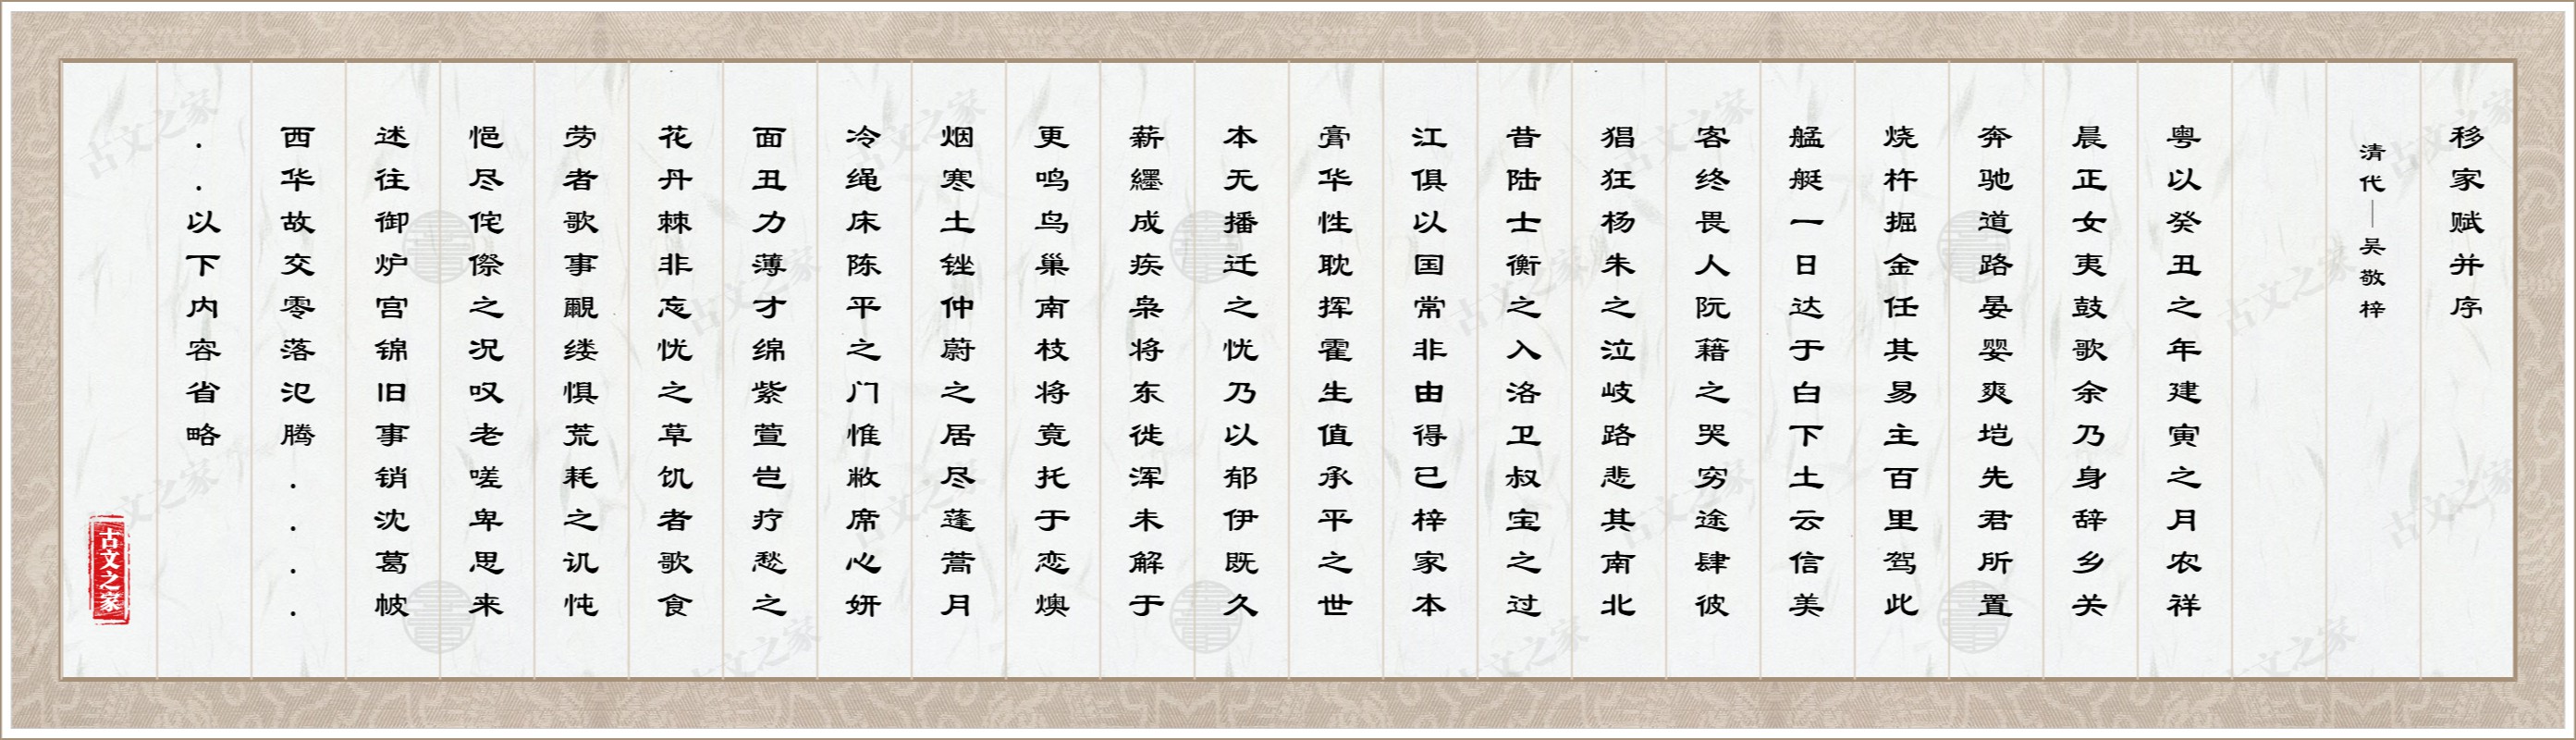 移家赋并序
清代—吴敬梓
粤以癸丑之年建寅之月农祥
晨正女夷鼓歌余乃身辞乡关
奔驰道路晏婴爽垲先君所置
烧杵掘金任其易主百里驾此
艋艇一日达于白下土云信美
客终畏人阮籍之哭穷途肆彼
猖狂杨朱之泣岐路悲其南北
昔陆士衡之入洛卫叔宝之过
江俱以国常非由得已梓家本
膏华性耽挥霍生值承平之世
本无播迁之忧乃以郁伊既久
薪纆成疾枭将东徙浑未解于
更鸣鸟巢南枝将竟托于恋燠
烟寒土锉仲蔚之居尽蓬蒿月
冷绳床陈平之门惟敝席心妍
面丑力薄才绵紫萱岂疗愁之
花丹棘非忘忧之草饥者歌食
劳者歌事覼缕惧荒耗之讥忳
悒尽侘傺之况叹老嗟卑思来
述往御炉宫锦旧事销沈葛帔
西华故交零落氾腾....
..以下内容省略
古文之家